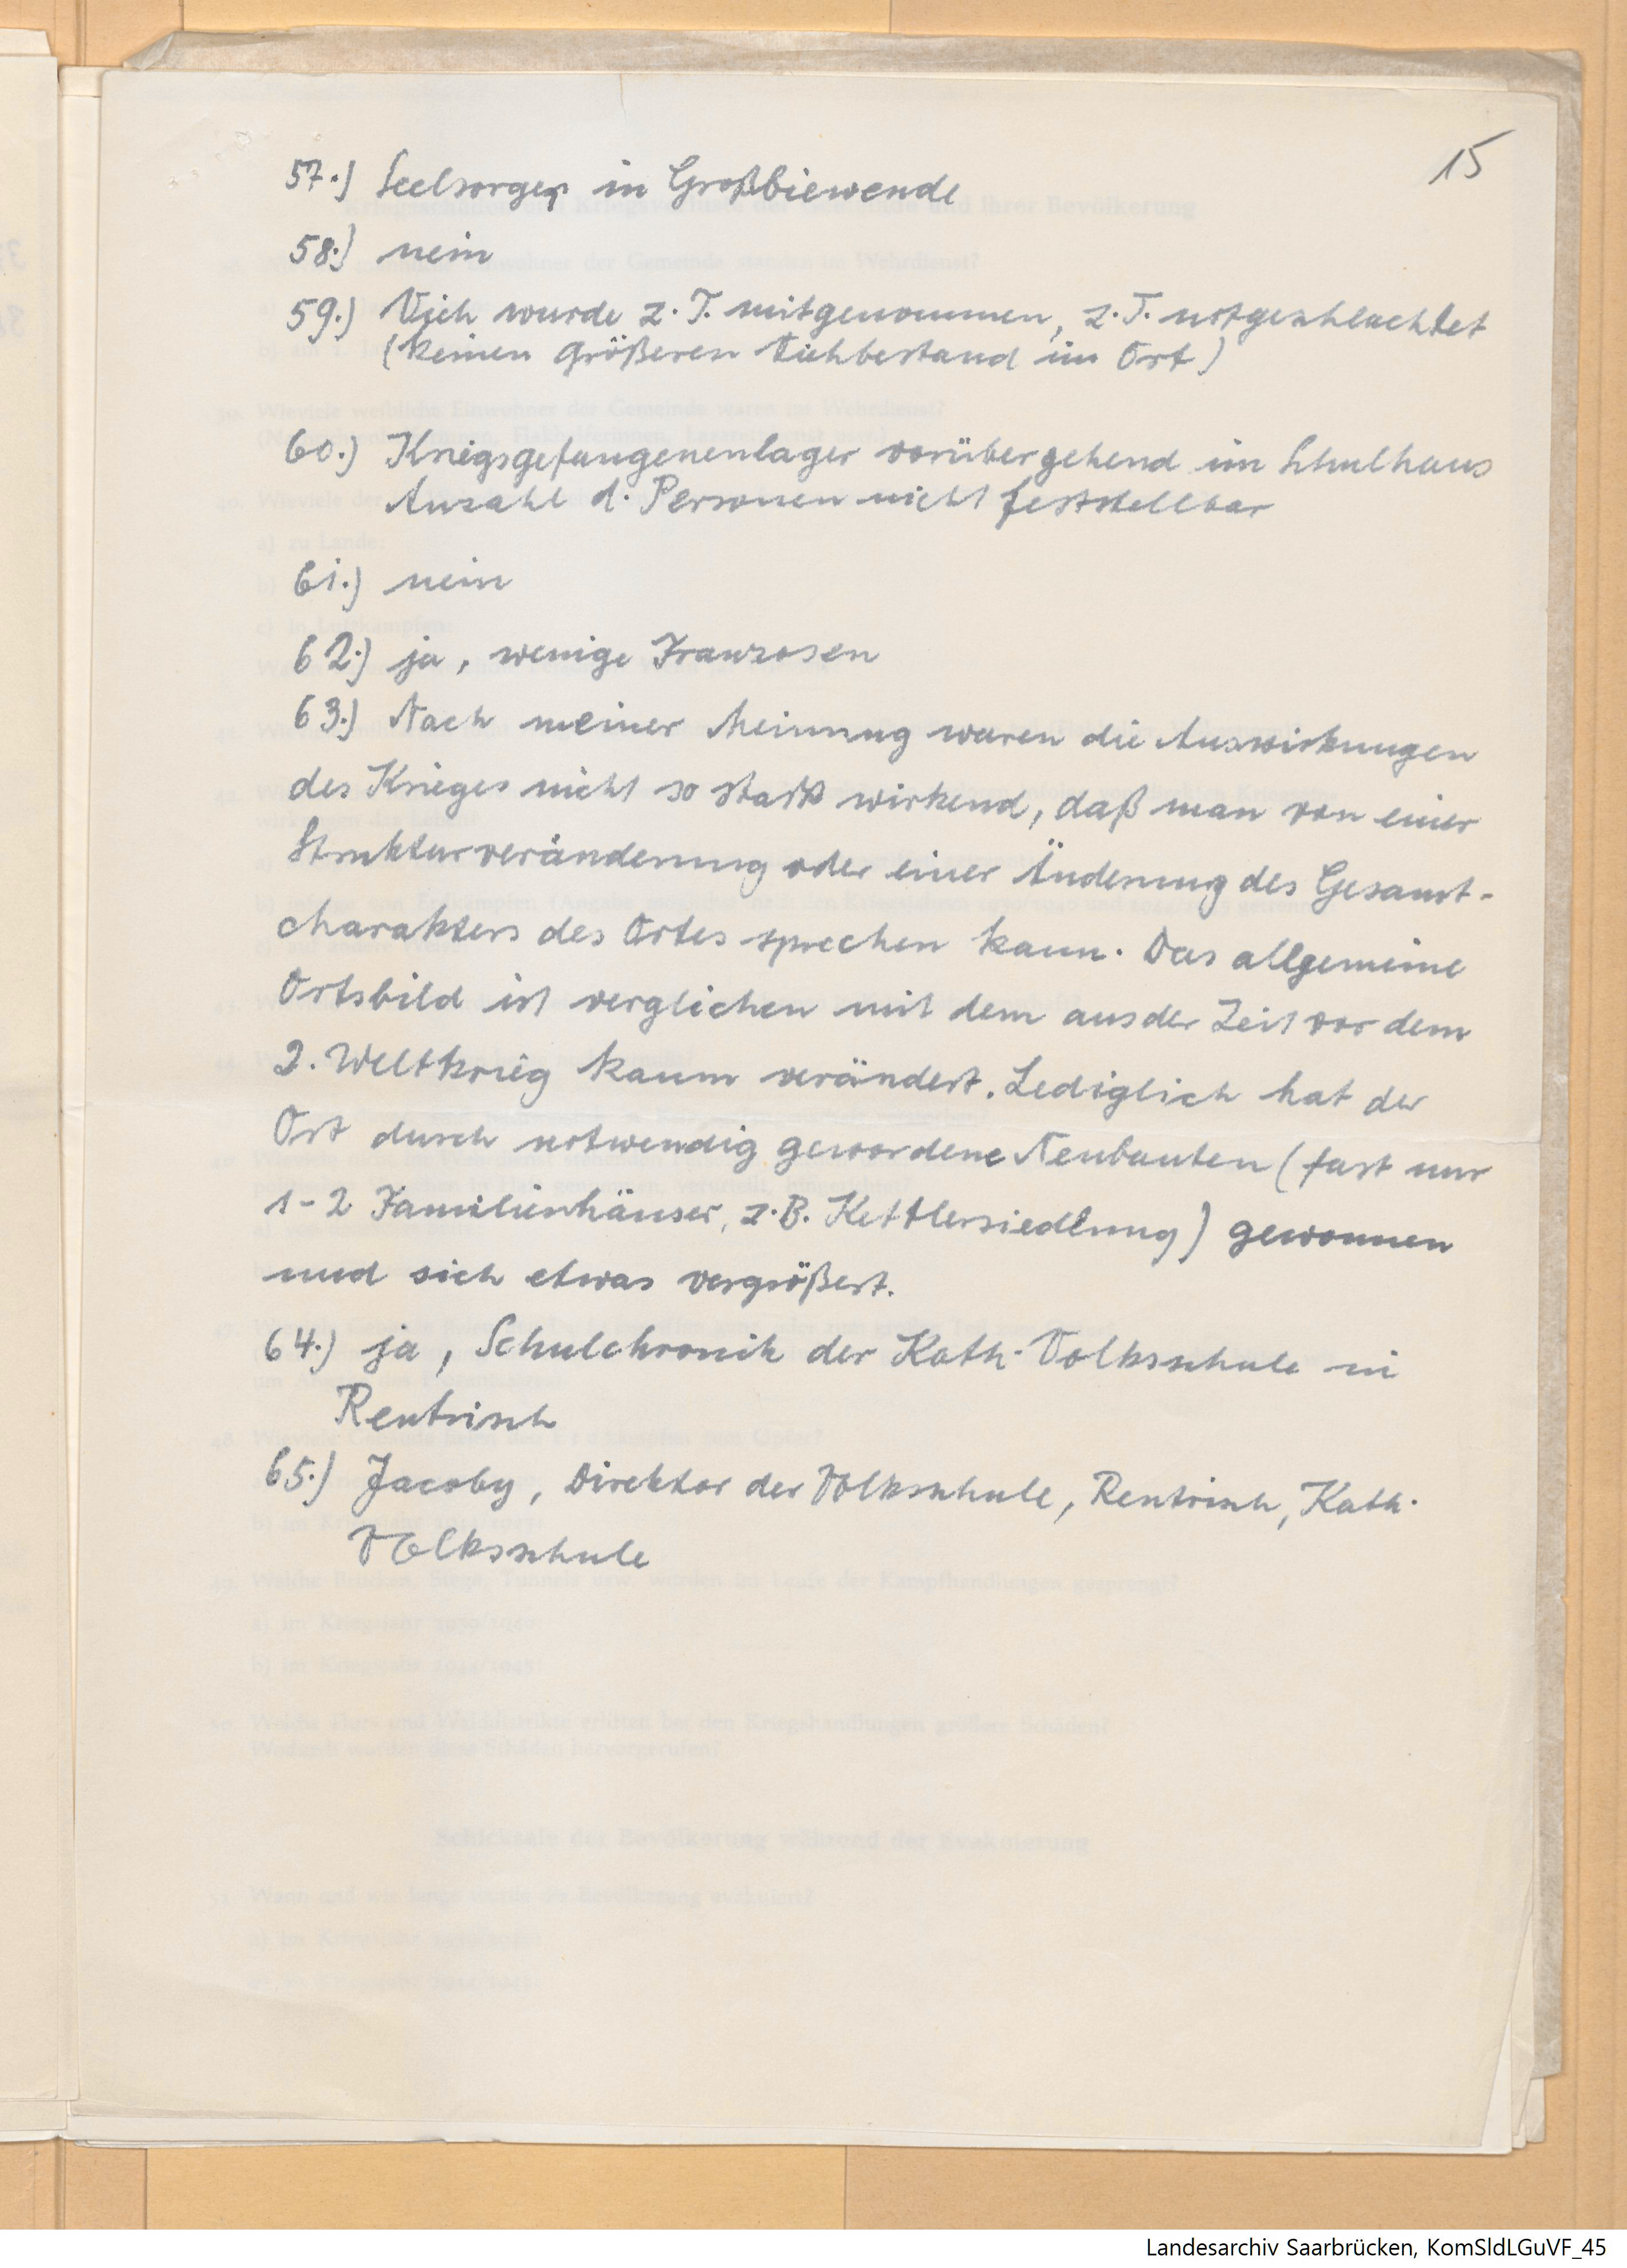 15
57.) Seelsorger in Großbiewende
58.) nein
59.) Vieh wurde z. T. mitgenommen, z. T. notgeschlachtet
(keinen größeren Viehbestand im Ort)
60.) Kriegsgefangenenlager vorübergehend im Schulhaus
Anzahl d. Personen nicht feststellbar
61.) nein
62.) ja, wenige Franzosen
63.) Nach meiner Meinung waren die Auswirkungen
des Krieges nicht so stark wirkend, daß man von einer
Strukturveränderung oder einer Änderung des Gesamt-
charakters des Ortes sprechen kann. Das allgemeine
Ortsbild ist verglichen mit dem aus der Zeit vor dem
2. Weltkrieg kaum verändert. Lediglich hat der
Ort durch notwendig gewordene Neubauten (fast nur
1-2 Familienhäuser, z.B. Kettlersiedlung) gewonnen
und sich etwas vergrößert.
64.) ja, Schulchronik der Kath. Volksschule in
Rentrisch
65.) Jacoby, Direktor der Volksschule, Rentrisch, Kath.
Volksschule
Landesarchiv Saarbrücken, KomSldLGuVF_45